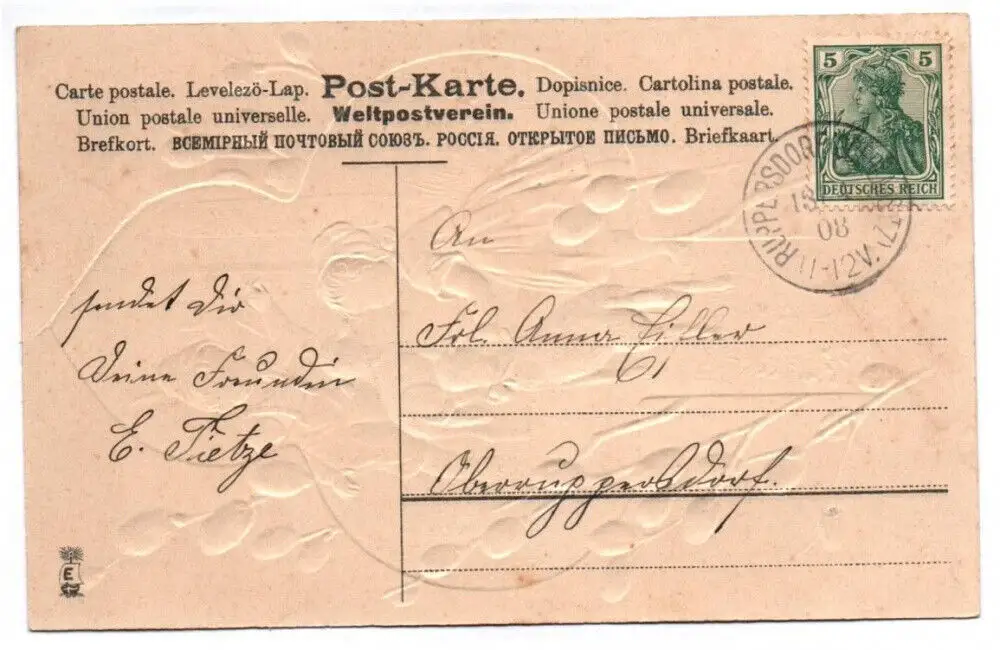 Carte postale. Levelezö-Lap. Post-Karte. Dopisnice. Cartolina postale.
Union postale universelle. Weltpostverein. Unione postale universale.
Brefkort. ВСЕМІРНЫЙ ПОЧТОВЫЙ СОЮЗЪ. РОССІЯ. ОТКРЫТОЕ ПИСЬМО. Briefkaart.
5 5
DEUTSCHES REICH
RUPPERSDORF
08
11-12V.
An
Frl. Anna
Oberruppersdorf.
sendet Dir
Deine Freundin
E. Tietze
E